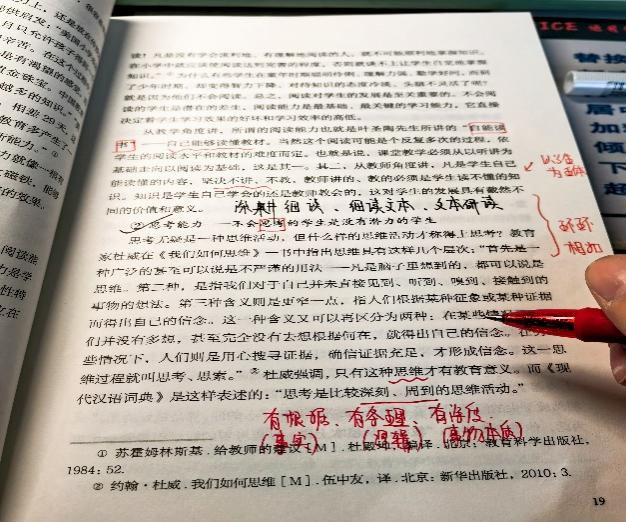 读！凡是没有学会流利地、有理解地阅读的人，就不可能顺利地掌握知识。
在小学中就应该使阅读达到完善的程度，否则就谈不上让学生自觉地掌握
知识。”①为什么有些学生在童年时期聪明伶俐、理解力强、勤学好问，而到
了少年时期，却变得智力下降，对待知识的态度冷淡，头脑不灵活了呢？
就是因为他们不会阅读。总之，阅读对学生的发展是至关重要的，不会阅
读的学生是潜在的差生，阅读能力是最基础、最关键的学习能力，它直接
决定着学生学习效果的好坏和学习效率的高低。
从教学角度讲，所谓的阅读能力也就是叶圣陶先生所讲的“自能读
书”——自己能够读懂教材。当然这个阅读可能是个反复多次的过程，依
学生的阅读水平和教材的难度而定。也就是说，课堂教学必须从以听讲为
基础走向以阅读为基础，这是其一。其二，从教师角度讲，凡是学生自己
能读懂的内容，坚决不讲、不教，教师讲的、教的必须是学生读不懂的知
识。知识是学生自己学会的还是教师教会的，这对学生的发展具有截然不
同的价值和意义。
细读、细读文本、文本研读
② 思考能力——不会思考的学生是没有潜力的学生
思考无疑是一种思维活动，但什么样的思维活动才称得上思考？教育
家杜威在《我们如何思维》一书中指出思维具有这样几个层次：“首先是一
种广泛的甚至可以说是不严谨的用法——凡是脑子里想到的，都可以说是
思维。第二种，是指我们对于自己并未直接见到、听到、嗅到、接触到的
事物的想法。第三种含义则是更窄一点，指人们根据某种征象或某种证据
而得出自己的信念。这一种含义又可以再区分为两种：在某些情
们并没有多想，甚至完全没有去想根据何在，就得出自己的信念。在
些情况下，人们则是用心搜寻证据，确信证据充足，才形成信念。这一思
维过程就叫思考、思索。”②杜威强调，只有这种思维才有教育意义。而《现
代汉语词典》是这样表述的：“思考是比较深刻、周到的思维活动。”
有根据、有条理、有深度
(事实) (逻辑) (事物本质)
① 苏霍姆林斯基．给教师的建议［M］．杜殿坤，编译．北京：教育科学出版社，
1984：52.
② 约翰·杜威．我们如何思维［M］．伍中友，译．北京：新华出版社，2010：3.
19
以学生
为主体
环环
相扣